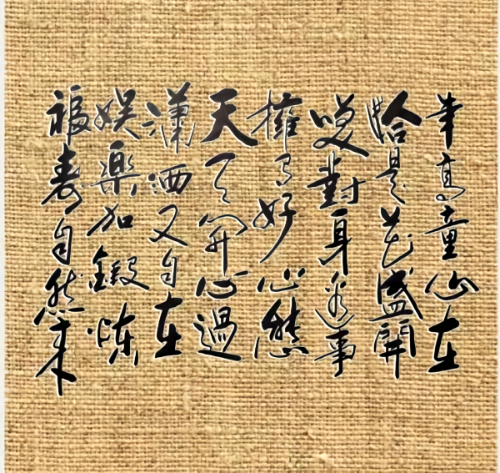 年高童心在
恰是花盛開
笑對身邊事
擁有好心態
天天開心過
瀟洒又自在
娱樂加鍛煉
福壽自然来